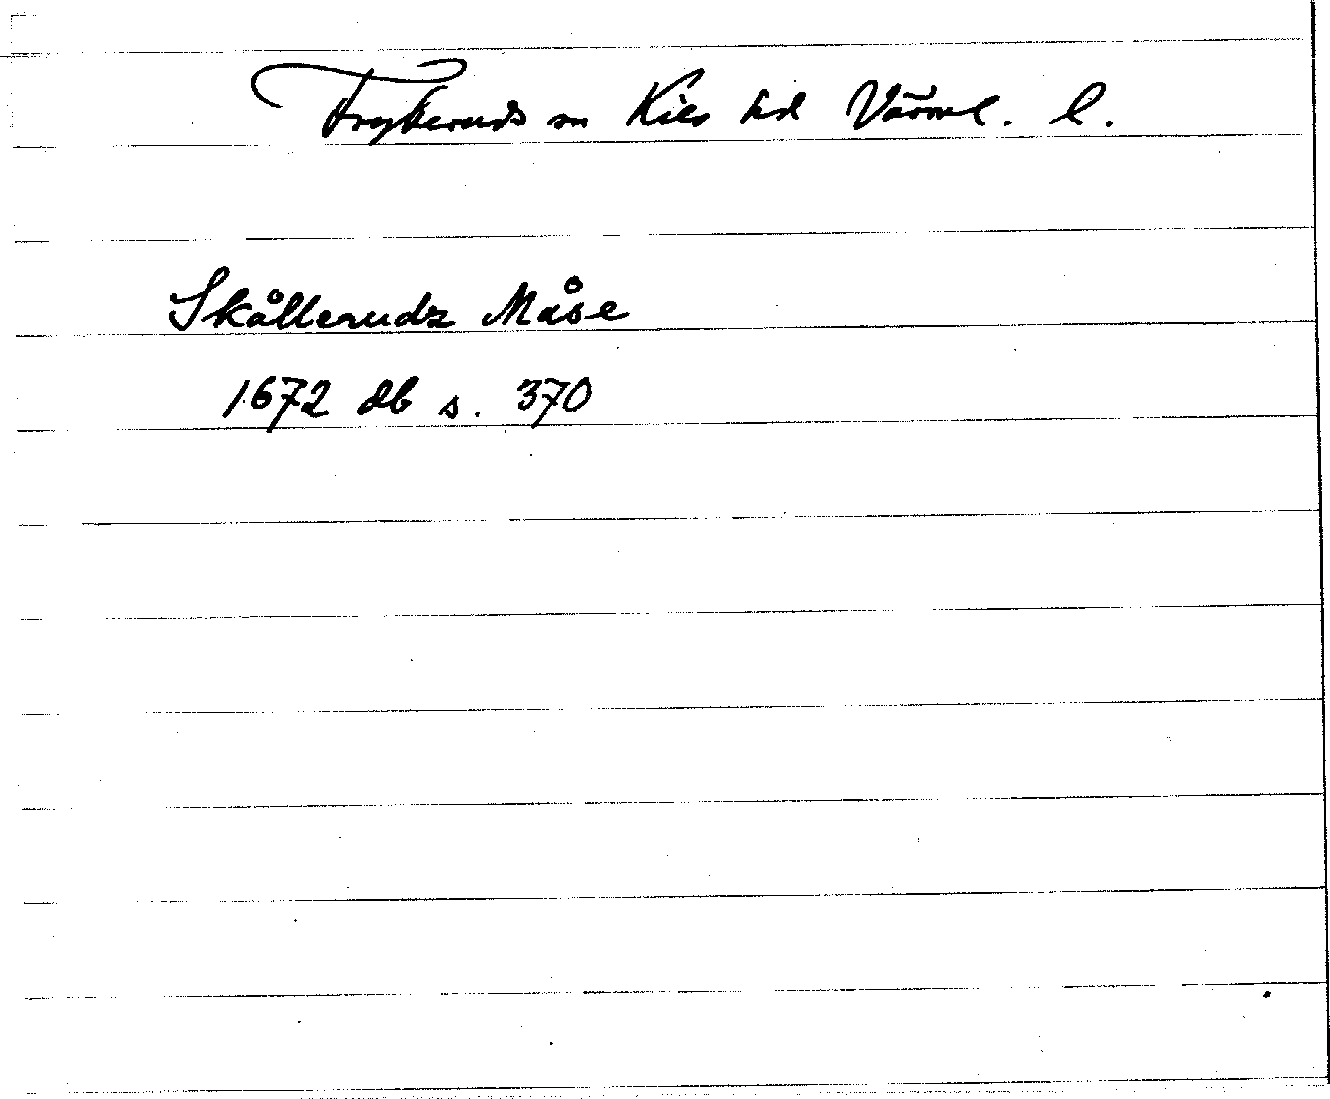 Frykeruds sn Kils hd Värml. l.
Skållerudz Måse
1672 db s. 370